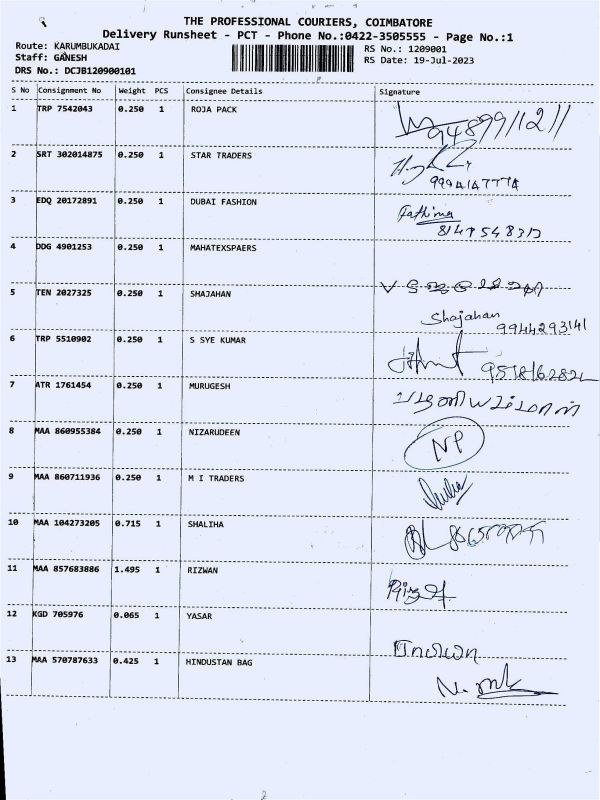 THE PROFESSIONAL COURIERS, COIMBATORE
Delivery Runsheet - PCT - Phone No.:0422-3505555 - Page No.:1
Route: KARUMBUKADAI
Staff: GANESH
DRS No.: DCJB120900101
RS No.: 1209001
RS Date: 19-Jul-2023
S No Consignment No Weight PCS Consignee Details Signature
1 TRP 7542043 0.250 1 ROJA PACK
2 SRT 302014875 0.250 1 STAR TRADERS
3 EDQ 20172891 0.250 1 DUBAI FASHION Fathima
4 DDG 4901253 0.250 1 MAHATEXSPAERS
5 TEN 2027325 0.250 1 SHAJAHAN Shajahan
9944293141
6 TRP 5510902 0.250 1 S SYE KUMAR
7 ATR 1761454 0.250 1 MURUGESH
8 MAA 860955384 0.250 1 NIZARUDEEN NP
9 MAA 860711936 0.250 1 M I TRADERS
10 MAA 104273205 0.715 1 SHALIHA
11 MAA 857683886 1.495 1 RIZWAN
12 KGD 705976 0.065 1 YASAR
13 MAA 570787633 0.425 1 HINDUSTAN BAG